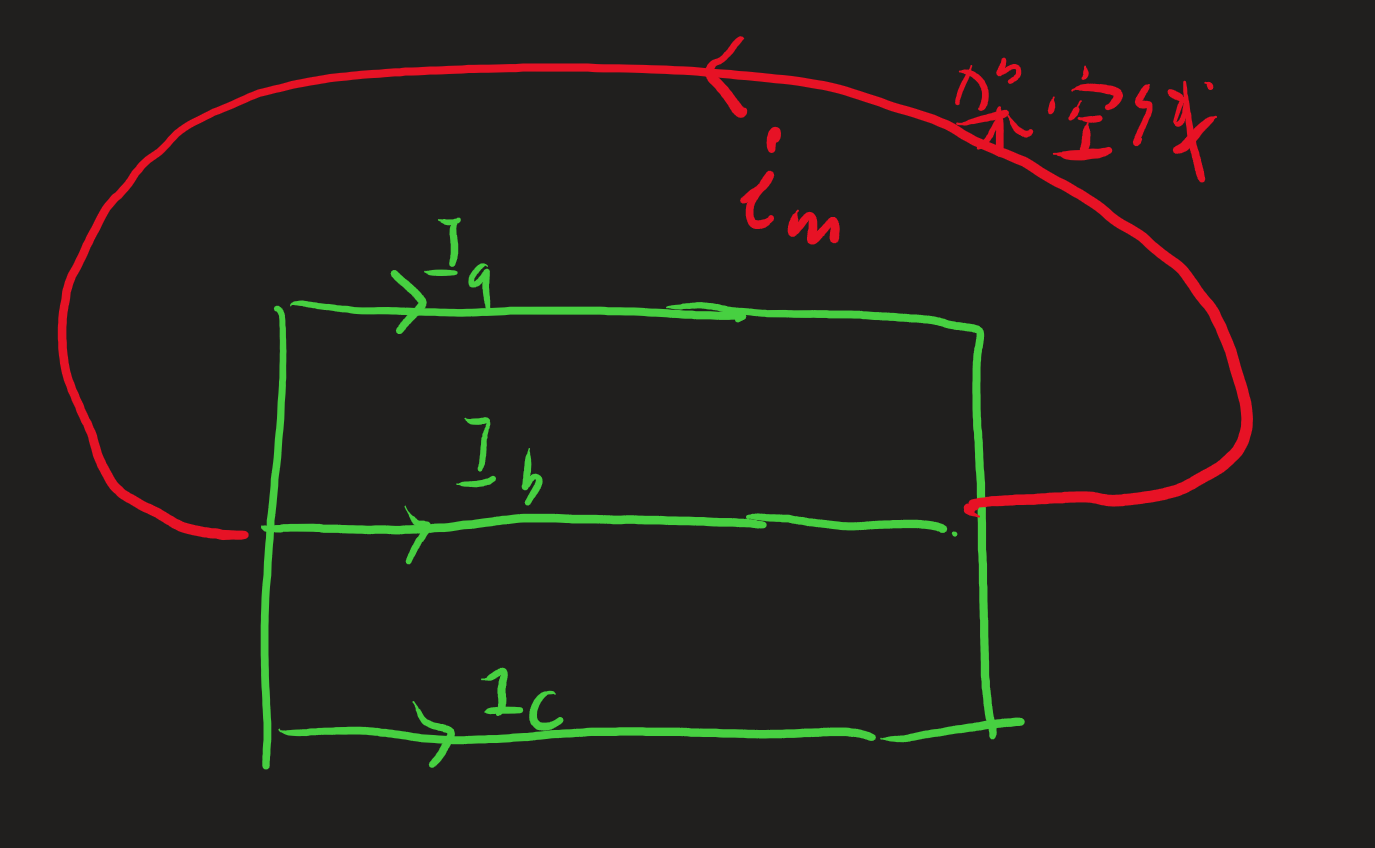 架空线
i̇m
Ia
Ib
Ic